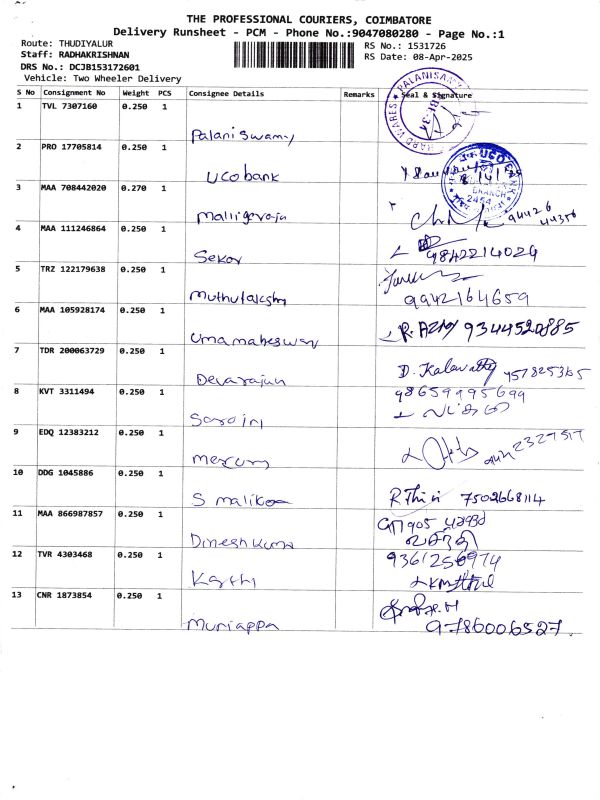 THE PROFESSIONAL COURIERS, COIMBATORE
Delivery Runsheet - PCM - Phone No.:9047080280 - Page No.:1
Route: THUDIYALUR
RS No.: 1531726
Staff: RADHAKRISHNAN
RS Date: 08-Apr-2025
DRS No.: DCJB153172601
Vehicle: Two Wheeler Delivery
S No Consignment No Weight PCS Consignee Details Remarks Seal & Signature
1 TVL 7307160 0.250 1 Palaniswamy
2 PRO 17705814 0.250 1 UCO bank
UCO BANK
BRANCH
3 MAA 708442020 0.270 1
94426
44356
4 MAA 111246864 0.250 1 Sekar 9842214024
5 TRZ 122179638 0.250 1 9942164659
6 MAA 105928174 0.250 1 Umamaheswary 9344520885
7 TDR 200063729 0.250 1 Devarajan D. Kalavathy
8 KVT 3311494 0.250 1
9 EDQ 12383212 0.250 1
10 DDG 1045886 0.250 1 S malika 7502668114
11 MAA 866987857 0.250 1 Dinesh Kuma
12 TVR 4303468 0.250 1 9361256974
13 CNR 1873854 0.250 1 Muniappa
9786006527